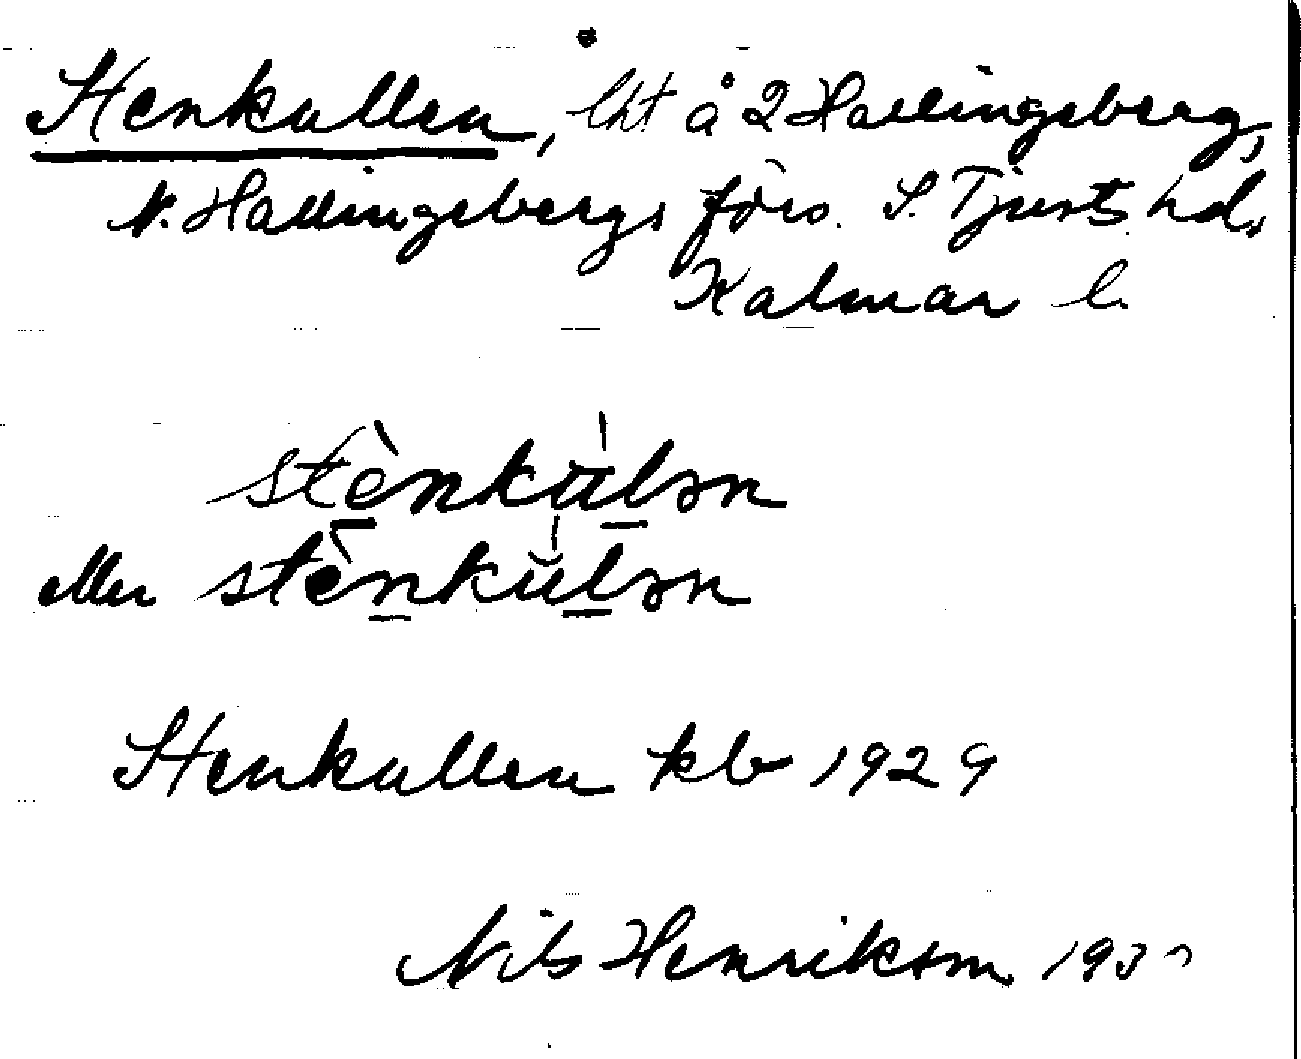 Stenkullen, lht å 2 Hallingeberg,
N. Hallingebergs förs. S. Tjusts hd.
Kalmar l.
stènkùlən
eller stènkùlən
Stenkullen kb 1929
Nils Henrikson